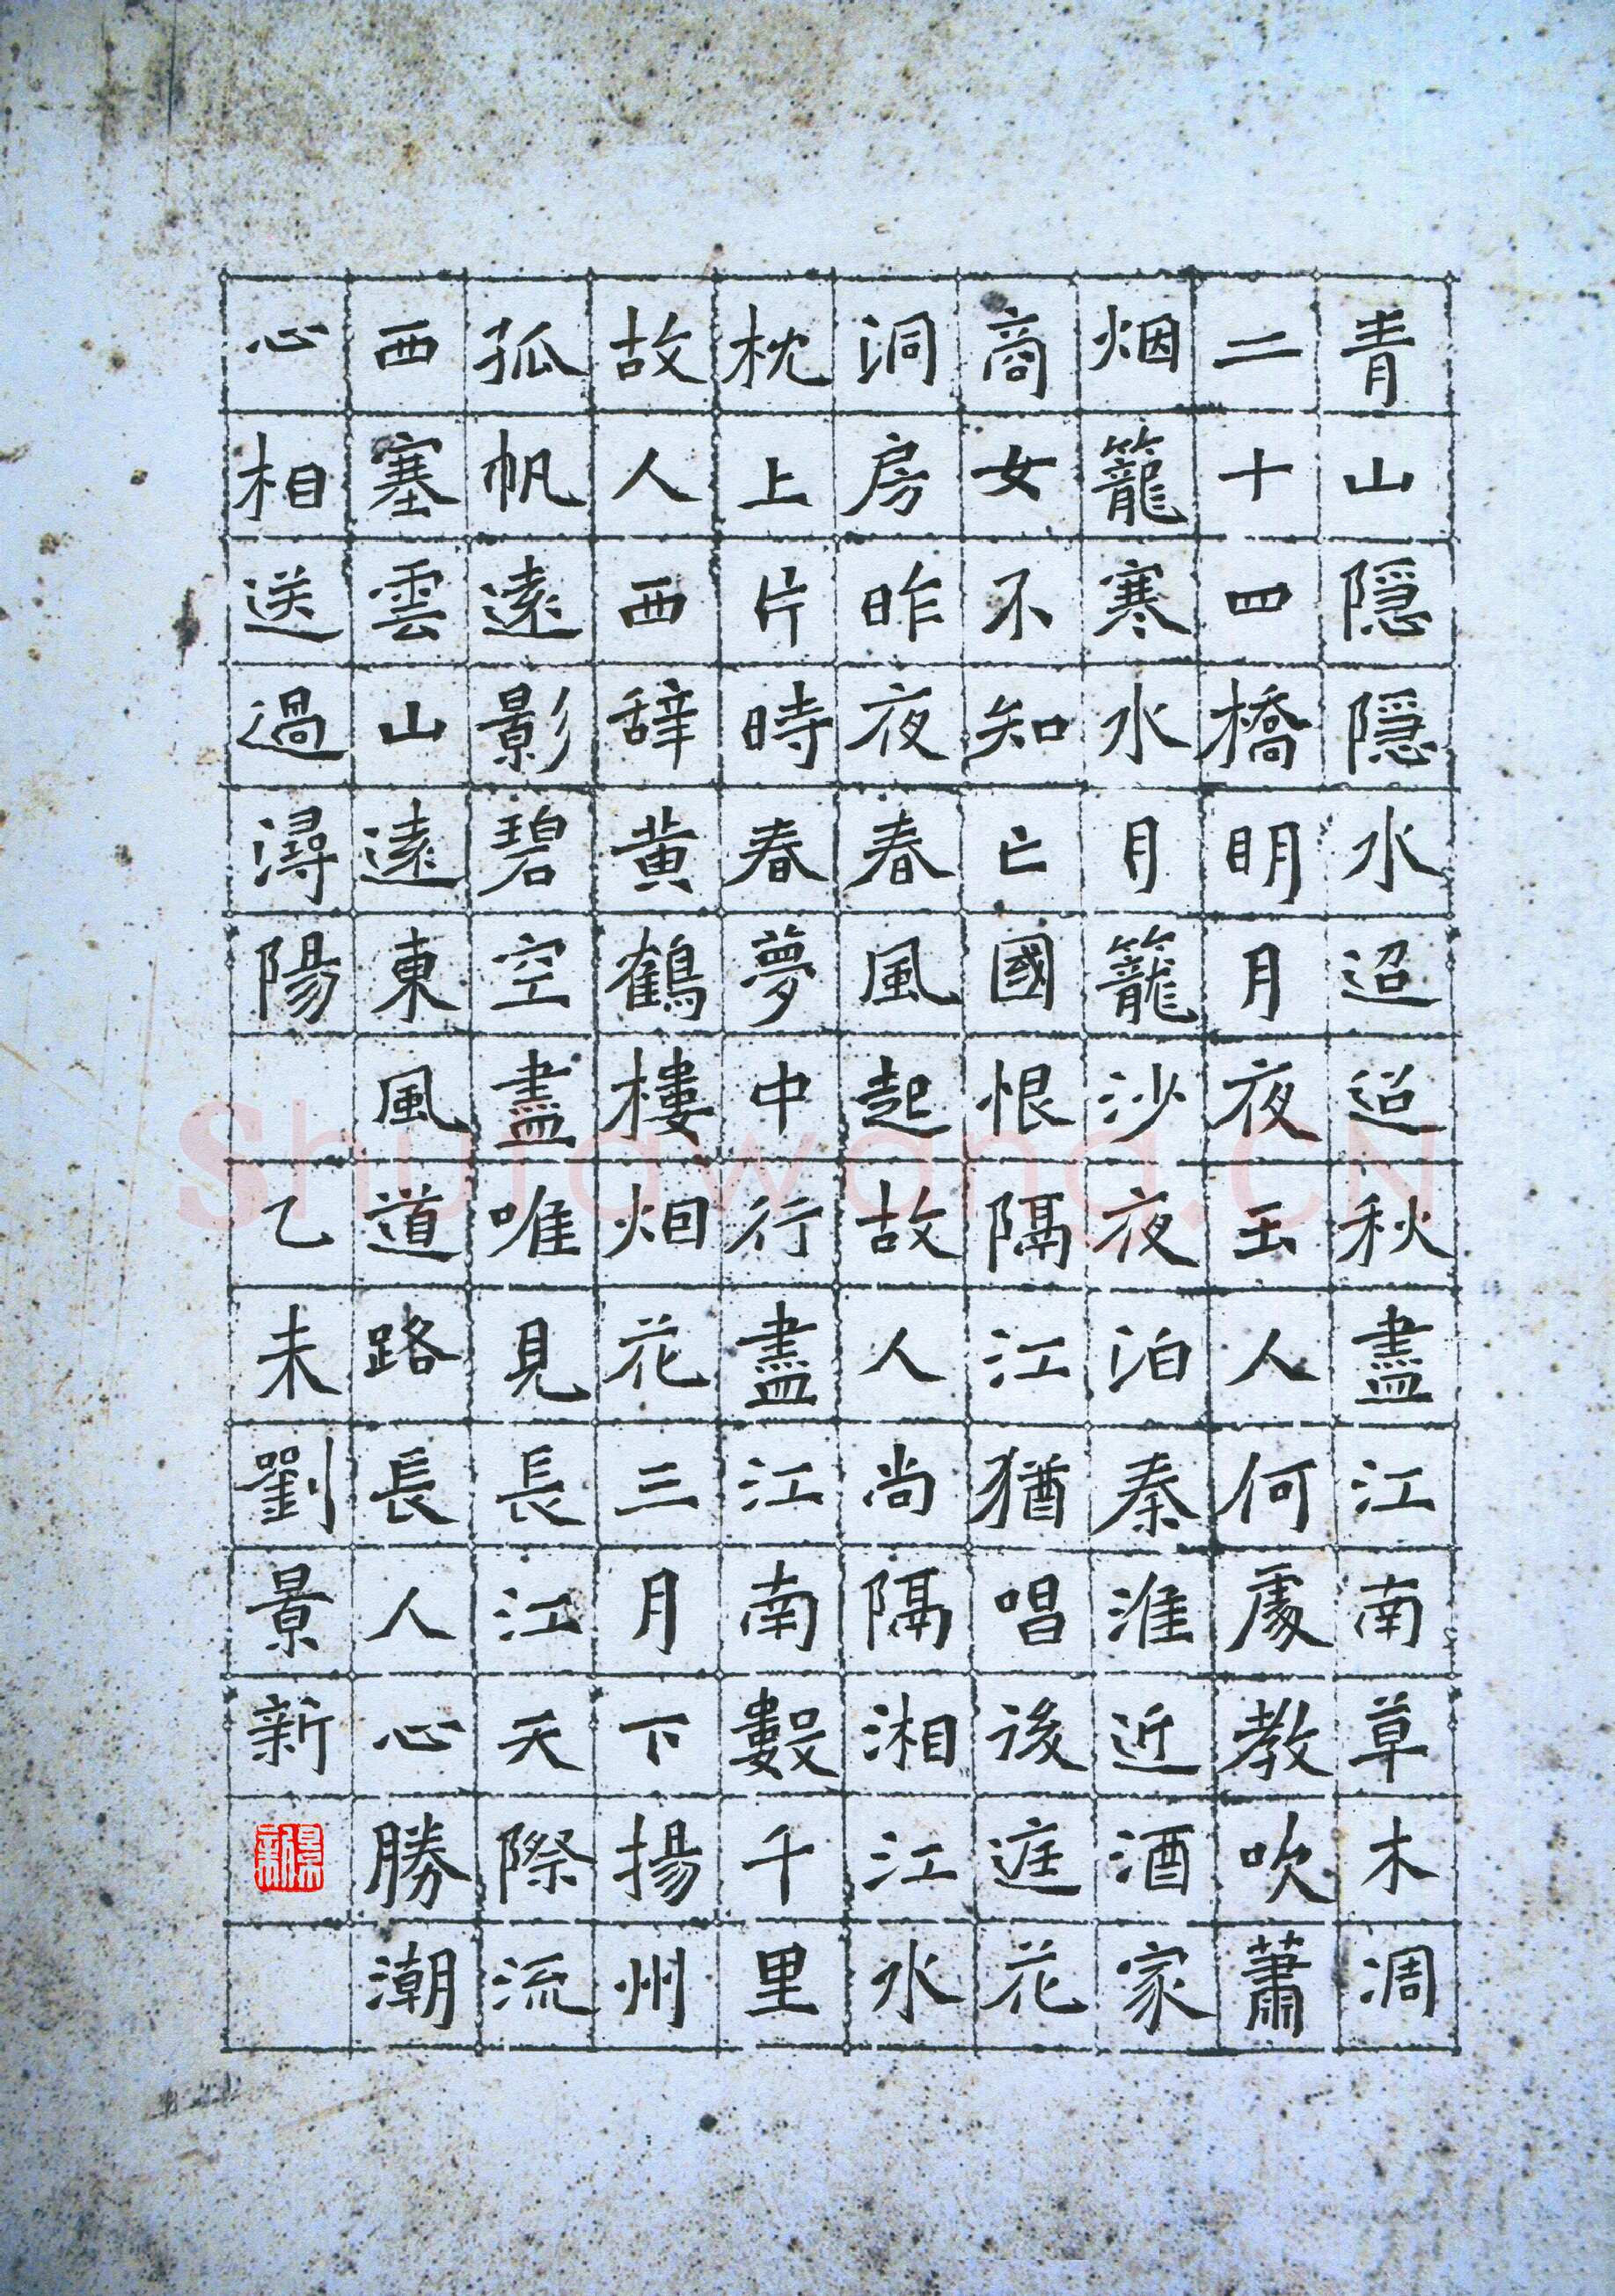 青山隱隱水迢迢秋盡江南草木凋
二十四橋明月夜玉人何處教吹蕭
烟籠寒水月籠沙夜泊秦淮近酒家
商女不知亡國恨隔江猶唱後庭花
洞房昨夜春風起故人尚隔湘江水
枕上片時春夢中行盡江南數千里
故人西辞黃鶴樓烟花三月下揚州
孤帆遠影碧空盡唯見長江天際流
西塞雲山遠東風道路長人心勝潮
心相送過潯陽 乙未劉景新
景新
Shufawang.CN